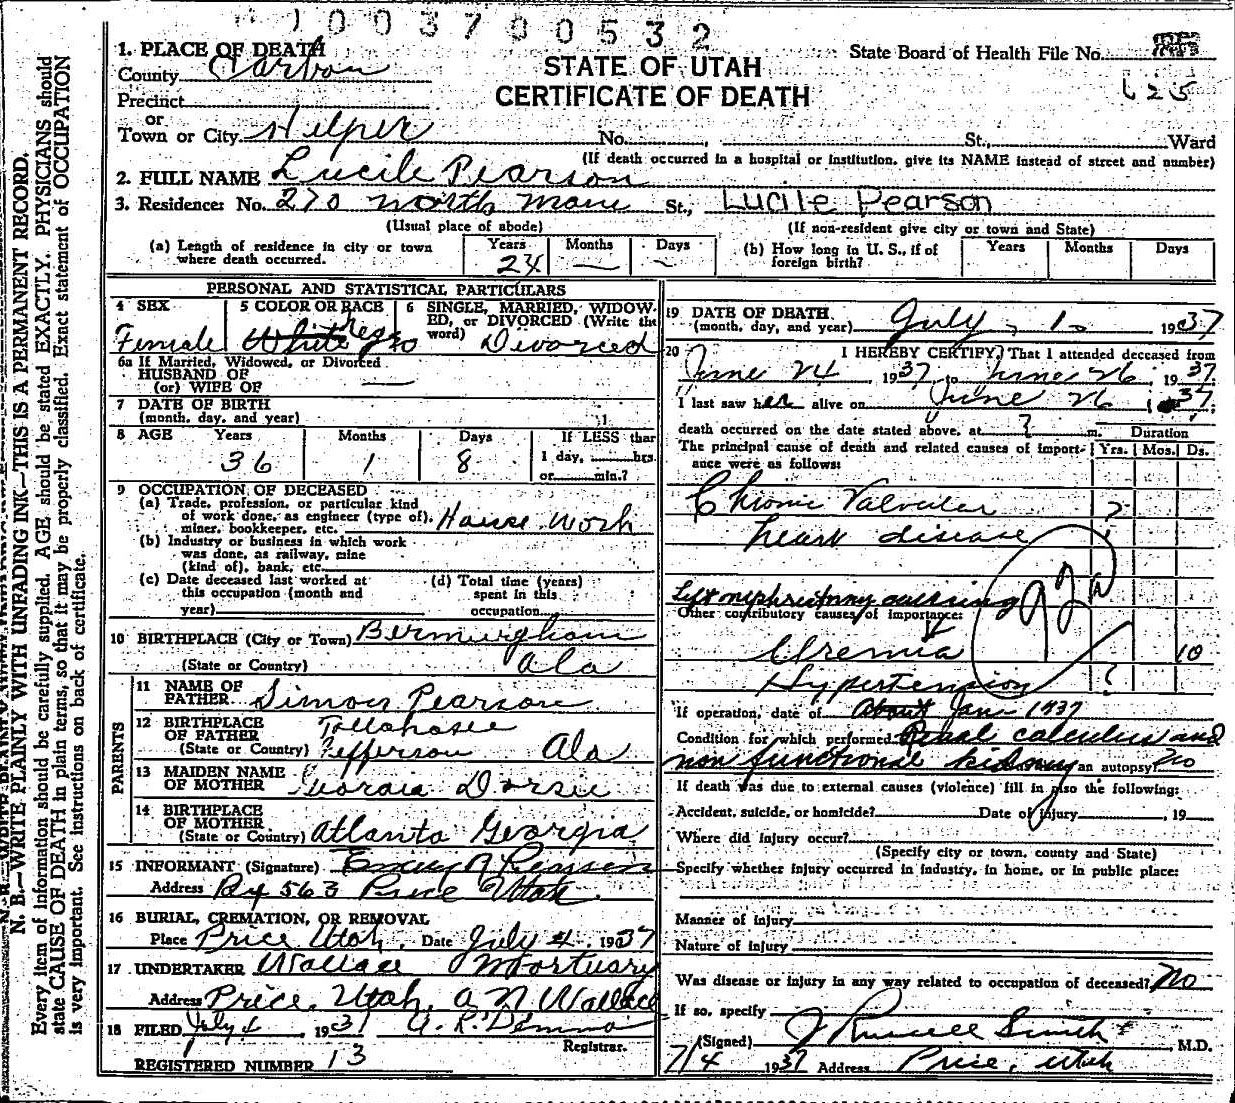 1003700532
1. PLACE OF DEATH
County Carbon
STATE OF UTAH
State Board of Health File No.
625
Precinct
CERTIFICATE OF DEATH
or
Town or City Helper No. , St., Ward
(If death occurred in a hospital or institution, give its NAME instead of street and number)
2. FULL NAME Lucile Pearson
3. Residence: No. 270 North Main St., Lucile Pearson
(Usual place of abode) (If non-resident give city or town and State)
(a) Length of residence in city or town where death occurred. Years 24 Months — Days -
(b) How long in U. S., if of foreign birth? Years Months Days
PERSONAL AND STATISTICAL PARTICULARS
4 SEX Female
5 COLOR OR RACE White Negro
6 SINGLE, MARRIED, WIDOWED, or DIVORCED (Write the word) Divorced
6a If Married, Widowed, or Divorced
HUSBAND OF
(or) WIFE OF —
7 DATE OF BIRTH
(month, day, and year)
8 AGE Years 36 Months 1 Days 8 If LESS than 1 day, hrs. or min.?
9 OCCUPATION OF DECEASED
(a) Trade, profession, or particular kind
of work done, as engineer (type of),
miner, bookkeeper, etc. House work
(b) Industry or business in which work
was done, as railway, mine
(kind of), bank, etc.
(c) Date deceased last worked at
this occupation (month and
year)
(d) Total time (years)
spent in this
occupation
10 BIRTHPLACE (City or Town) Bermingham
(State or Country) Ala
PARENTS
11 NAME OF
FATHER Simon Pearson
12 BIRTHPLACE
OF FATHER Tallahosee
(State or Country) Jefferson Ala
13 MAIDEN NAME
OF MOTHER Georgia Dorsee
14 BIRTHPLACE
OF MOTHER
(State or Country) Atlanta Georgia
15 INFORMANT (Signature) Pearson
Address Bx 563 Price Utah.
16 BURIAL, CREMATION, OR REMOVAL
Place Price Utah. Date July 4, 1937
17 UNDERTAKER Wallace Mortuary
Address Price, Utah. A N Wallace
18 FILED July 4 1937
Registrar.
REGISTERED NUMBER 13
19 DATE OF DEATH
(month, day, and year) July 1, 1937
20 I HEREBY CERTIFY, That I attended deceased from
June 24, 1937 to June 26, 1937.
I last saw her alive on June 26 1937.
death occurred on the date stated above, at ? m. Duration
The principal cause of death and related causes of importance were as follows: Yrs. Mos. Ds.
Chronic Valvular ?
heart disease
Left nephrectomy causing
92a
Other contributory causes of importance:
Uremia 10
Hypertension ?
If operation, date of About Jan 1937
Condition for which performed Renal calculus and
non functional kidney an autopsy? no
If death was due to external causes (violence) fill in also the following:
Accident, suicide, or homicide? Date of injury , 19
Where did injury occur?
(Specify city or town, county and State)
Specify whether injury occurred in industry, in home, or in public place:
Manner of injury
Nature of injury
Was disease or injury in any way related to occupation of deceased? No
If so, specify
(Signed) J Russell Smith, M.D.
7/4 1937 Address Price, Utah
N. B.—WRITE PLAINLY WITH UNFADING INK—THIS IS A PERMANENT RECORD.
Every item of information should be carefully supplied. AGE should be stated EXACTLY. PHYSICIANS should
state CAUSE OF DEATH in plain terms, so that it may be properly classified. Exact statement of OCCUPATION
is very important. See instructions on back of certificate.